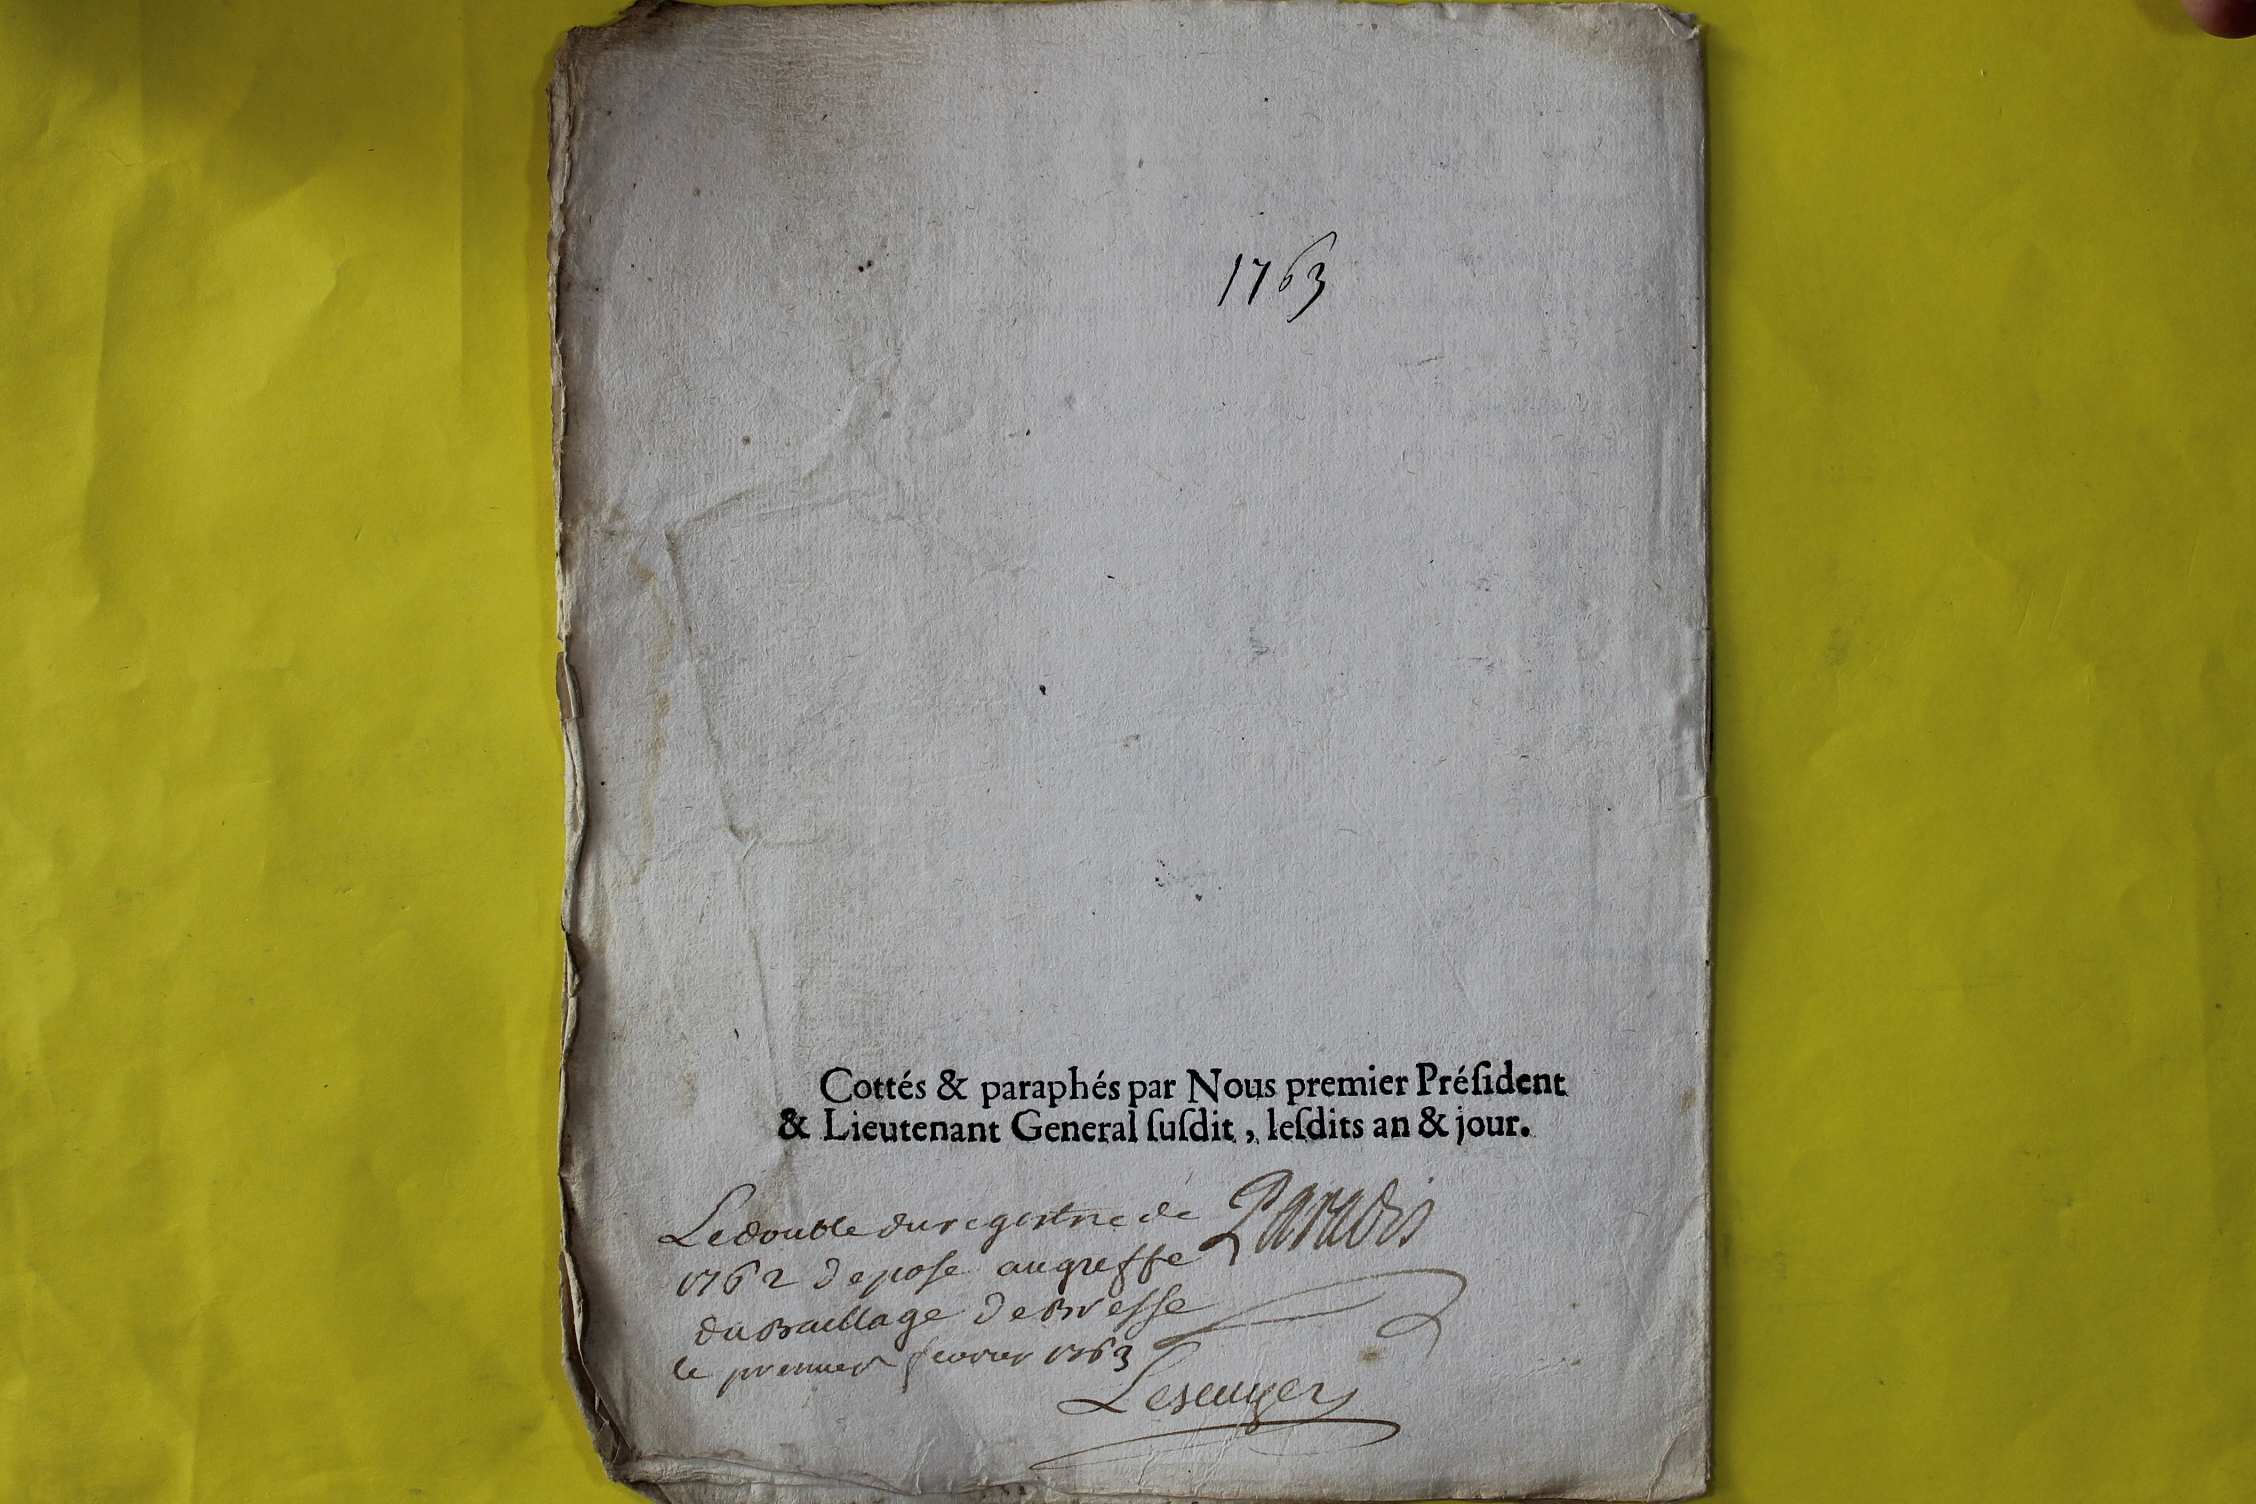 1763
Cottés & paraphés par Nous premier Préſident
& Lieutenant General ſuſdit, leſdits an & jour.
Le double du regestre de
Paradis
1762 depose au greffe
du Baillage de Bresse
le premier fevrier 1763
Lescuyer